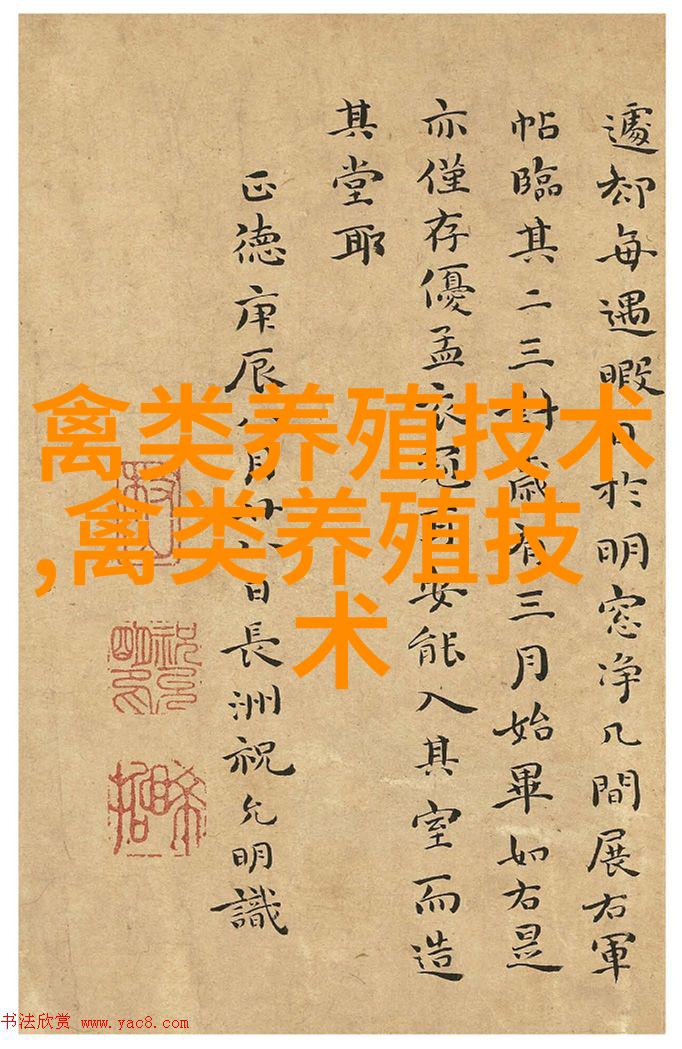 遽却每遇暇日於明窓净几間展右軍
帖臨其二三計歲有三月始畢如右是
亦僅存優孟衣冠耳安能入其室而造
其堂耶
正德庚辰八月廿日長洲祝允明識
禽类养殖技术
,禽类养殖技
术
书法欣赏 www.yac8.com